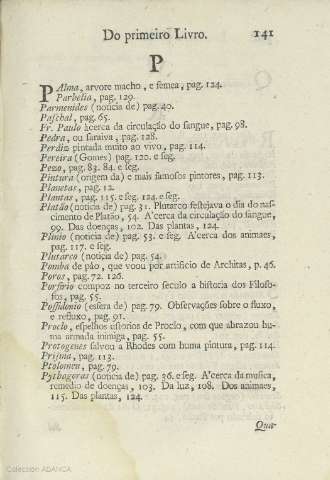 Do primeiro Livro. 141
P
PAlma, arvore macho, e femea, pag. 124.
Parhelia, pag. 129.
Parmenides (noticia de) pag. 40.
Paschal, pag. 65.
Fr. Paulo ácerca da circulação do sangue, pag. 98.
Pedra, ou saraiva, pag. 128.
Perdiz pintada muito ao vivo, pag. 114.
Pereira (Gomes) pag. 120. e seg.
Pezo, pag. 83. 84. e seg.
Pintura (origem da) e mais famosos pintores, pag. 113.
Planetas, pag. 12.
Plantas, pag. 115. e seg. 124. e seg.
Platão (noticia de) pag. 31. Plutarco festejava o dia do nas-
cimento de Platão, 54. A'cerca da circulação do sangue,
99. Das doenças, 102. Das plantas, 124.
Plinio (noticia de) pag. 53. e seg. A'cerca dos animaes,
pag. 117. e seg.
Plutarco (noticia de) pag. 54.
Pomba de páo, que voou por artificio de Architas, p. 46.
Poros, pag. 72. 126.
Porfirio compoz no terceiro seculo a historia dos Filoso-
fos, pag. 55.
Possidonio (esfera de) pag. 79. Observações sobre o fluxo,
e refluxo, pag. 91.
Proclo, espelhos ustorios de Proclo, com que abrazou hu-
ma armada inimiga, pag. 55.
Protogenes salvou a Rhodes com huma pintura, pag. 114.
Prisma, pag. 113.
Ptolomeu, pag. 79.
Pythagoras (noticia de) pag. 26. e seg. A'cerca da musica,
remedio de doenças, 103. Da luz, 108. Dos animaes,
115. Das plantas, 124.
Qua-
Coleccion ADANCA